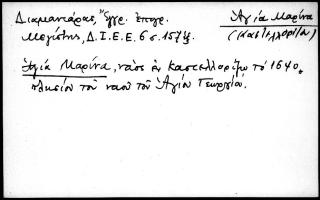 Διαμαντάρας, Ἔγγρ. ἐπιγρ.
Μεγίστης, Δ.Ι.Ε.Ε. 6 σ. 157
Ἁγία Μαρίνα
(Καστελλορίζον)
Ἁγία Μαρίνα, ναὸς ἐν Καστελλορίζῳ τὸ 1640,
πλησίον τοῦ ναοῦ τοῦ Ἁγίου Γεωργίου.